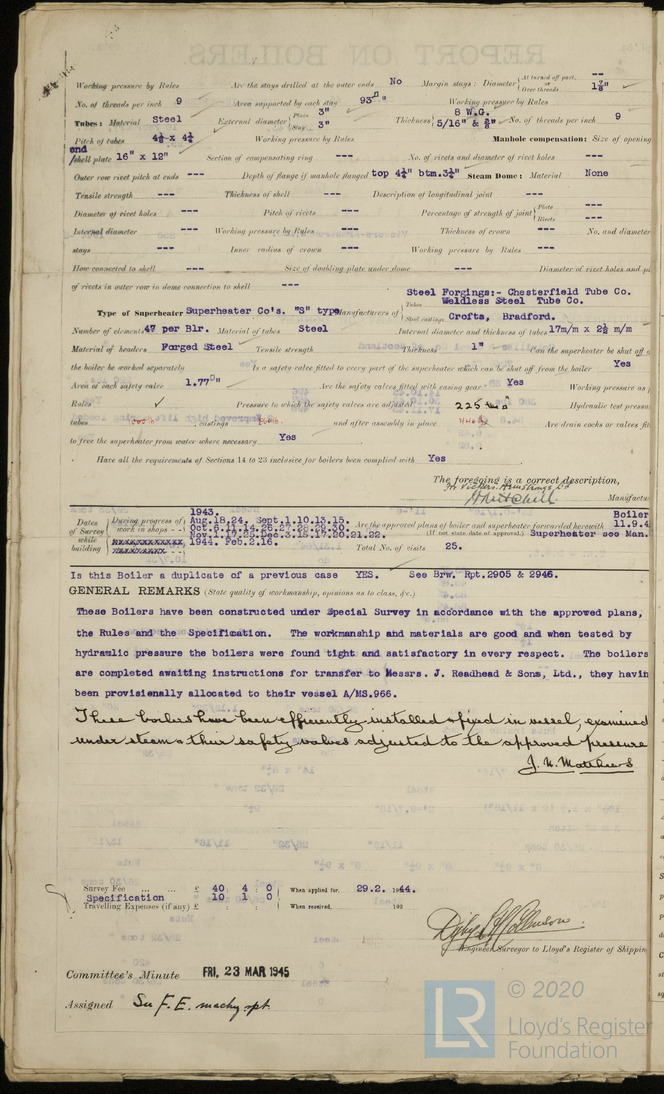 Working pressure by Rules Are the stays drilled at the outer ends No Margin stays: Diameter { At turned off part, ---
or Over threads 1⅞"
No. of threads per inch 9 Area supported by each stay 93□" Working pressure by Rules
Tubes: Material Steel External diameter { Plain 3" Stay 3" Thickness { 8 W.G. 5/16" & ⅜" No. of threads per inch 9
Pitch of tubes 4⅛ x 4¼ Working pressure by Rules Manhole compensation: Size of opening
end
/shell plate 16" x 12" Section of compensating ring --- No. of rivets and diameter of rivet holes ---
Outer row rivet pitch at ends --- Depth of flange if manhole flanged top 4¼" btm.3¼" Steam Dome: Material None
Tensile strength --- Thickness of shell --- Description of longitudinal joint ---
Diameter of rivet holes --- Pitch of rivets --- Percentage of strength of joint { Plate --- Rivets ---
Internal diameter --- Working pressure by Rules --- Thickness of crown --- No. and diameter
stays --- Inner radius of crown --- Working pressure by Rules ---
How connected to shell --- Size of doubling plate under dome --- Diameter of rivet holes and pi
of rivets in outer row in dome connection to shell ---
Steel Forgings:- Chesterfield Tube Co.
Tubes Weldless Steel Tube Co.
Type of Superheater Superheater Co's. "S" type Manufacturers of { Steel castings Crofts, Bradford.
Number of elements 47 per Blr. Material of tubes Steel Internal diameter and thickness of tubes 17m/m x 2½ m/m
Material of headers Forged Steel Tensile strength Thickness 1" Can the superheater be shut off a
the boiler be worked separately Yes
Is a safety valve fitted to every part of the superheater which can be shut off from the boiler Yes
Area of each safety valve 1.77□" Are the safety valves fitted with easing gear Yes Working pressure as
Rules ✓ Pressure to which the safety valves are adjusted 225 Hydraulic test pressu
tubes castings and after assembly in place Are drain cocks or valves fit
to free the superheater from water where necessary Yes
Have all the requirements of Sections 14 to 23 inclusive for boilers been complied with Yes
The foregoing is a correct description,
For Vickers-Armstrongs Ld
Manufactu
Dates of Survey while building { During progress of work in shops - - 1943. Aug.18,24. Sept.1.10.13.15.
Oct.6.11.14.26.27.28.29.30.
Nov.1.17.25.Dec.3.15.17.20.21.22.
1944. Feb.2.16.
Are the approved plans of boiler and superheater forwarded herewith Boiler 11.9.4
(If not state date of approval.) Superheater see Man.
Total No. of visits 25.
Is this Boiler a duplicate of a previous case YES. See Brw. Rpt.2905 & 2946.
GENERAL REMARKS (State quality of workmanship, opinions as to class, &c.)
These Boilers have been constructed under Special Survey in accordance with the approved plans,
the Rules and the Specification. The workmanship and materials are good and when tested by
hydraulic pressure the boilers were found tight and satisfactory in every respect. The boilers
are completed awaiting instructions for transfer to Messrs. J. Readhead & Sons, Ltd., they havin
been provisionally allocated to their vessel A/MS.966.
These boilers have been efficiently installed & fixed in vessel, examined
under steam & their safety valves adjusted to the approved pressure
J. N. Matthews
Survey Fee ... ... £ 40 : 4 : 0 When applied for. 29.2. 1944.
Specification 10 1 0
Travelling Expenses (if any) £ : : When received. 192
Engineer Surveyor to Lloyd's Register of Shippin
Committee's Minute FRI, 23 MAR 1945
Assigned See F.E. machy rpt.
LR © 2020
Lloyd's Register
Foundation